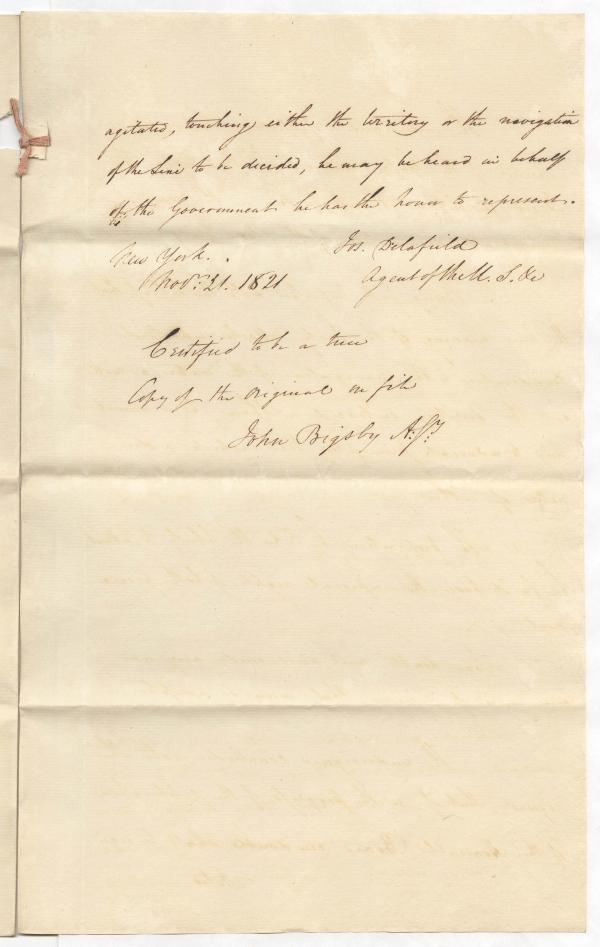 agitated, touching either the territory or the navigation
of the Line to be decided, he may be heard in behalf
of the Government he has the honor to represent.
New York.
Novr. 21. 1821
Jos. Delafield
Agent of the U. S. &c
Certified to be a true
Copy of the original on file
John Bigsby A. Sy.